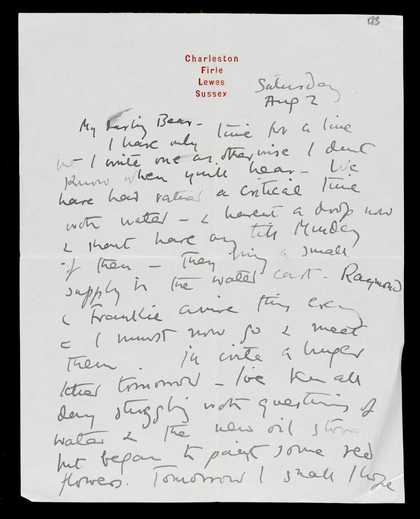 183
Charleston
Firle
Lewes
Sussex
Saturday
Aug 2
My darling Bear -
I have only time for a line
but I write one as otherwise I don't
know when you'll hear - We
have had rather a critical time
with water - & haven't a drop now
& shan't have any till Monday
if then - They bring a small
supply in the water cart - Raymond
& Frankie arrive this evening
& I must now go & meet
them. I'll write a longer
letter tomorrow - I've been all
day struggling with questions of
water & the new oil stove
but began to paint some red
flowers. Tomorrow I shall I hope